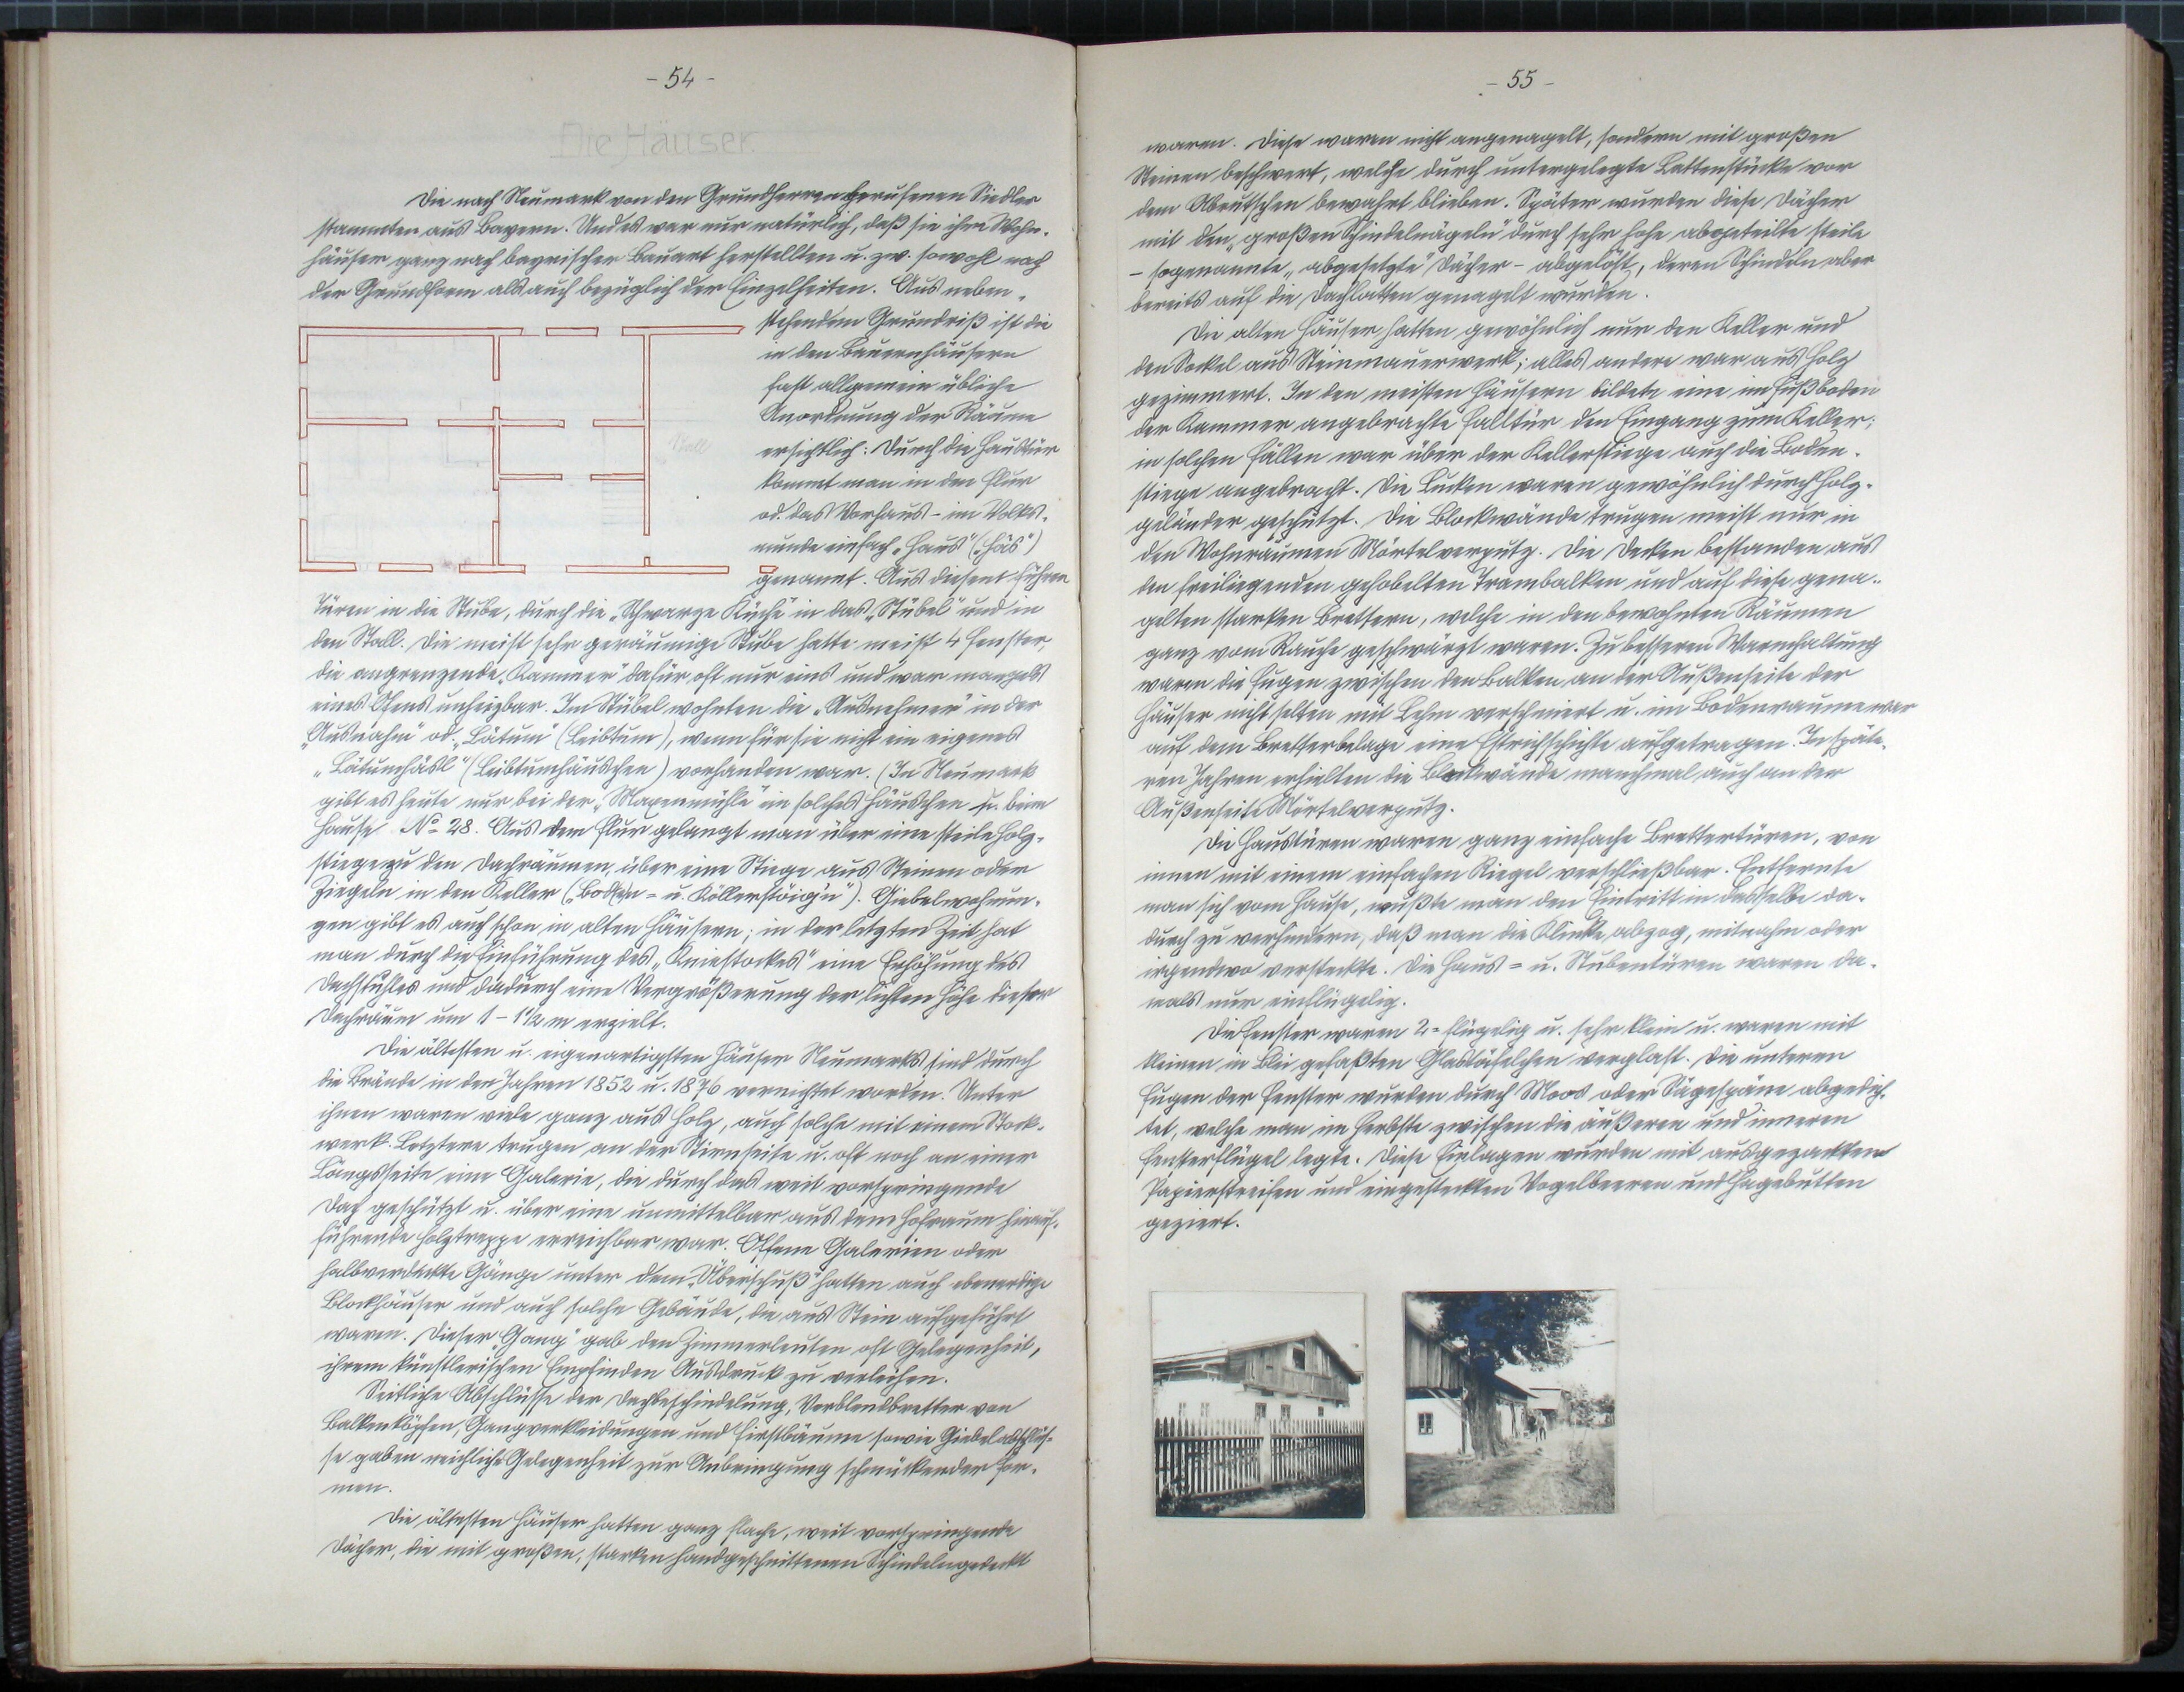 - 54 -
Die Häuser.
Die nach Neumark von den Grundherren berufenen Siedler
stammten aus Bayern. Und es war nur natürlich, daß sie ihre Wohn-
häuser ganz nach bayrischer Bauart herstellten u. zw. sowohl nach
der Grundform als auch bezüglich der Einzelheiten. Aus neben-
stehendem Grundriß ist die
in den Bauernhäusern
fast allgemein übliche
Anordnung der Räume
Stall
ersichtlich: Durch die Haustür
kommt man in den Flur
od. das Vorhaus - im Volks-
munde einfach „Haus" („Häs")
genannt. Aus diesem führen
Türen in die Stube, durch die „Schwarze Küche" in das „Stübel" und in
den Stall. Die meist sehr geräumige Stube hatte meist 4 Fenster,
die angrenzende „Kammer" dafür oft nur eins und war mangels
eines Ofens unheizbar. Im Stübel wohnten die „Ausnehmer" in der
„Ausnahm" od. „Lätum" (Leibtum), wenn für sie nicht ein eigenes
„Lätumhäsl" (Leibtumhäuschen) vorhanden war. (In Neumark
gibt es heute nur bei der „Maxenmühle" ein solches Häuschen u. beim
Hause No 28. Aus dem Flur gelangt man über eine steile Holz-
stiege zu den Dachräumen, über eine Stiege aus Steinen oder
Ziegeln in den Keller („Boden= u. Köllerstöig'n"). Giebelwohnun-
gen gibt es auch schon in alten Häusern; in der letzten Zeit hat
man durch die Einführung des „Kniestockes" eine Erhöhung des
Dachstuhles und dadurch eine Vergrößerung der lichten Höhe dieser
Dachräume um 1 - 1½ m erzielt.
Die ältesten u. eigenartigsten Häuser Neumarks sind durch
die Brände in den Jahren 1852 u. 1876 vernichtet worden. Unter
ihnen waren viele ganz aus Holz, auch solche mit einem Stock-
werk. Letztere trugen an der Stirnseite u. oft noch an einer
Längsseite eine Galerie, die durch das weit vorspringende
Dach geschützt u. über eine unmittelbar aus dem Hofraum hinauf-
führende Holztreppe erreichbar war. Offene Galerien oder
halbverdeckte Gänge unter dem „Überschuß" hatten auch ebenerdige
Blockhäuser und auch solche Gebäude, die aus Stein aufgeführt
waren. Dieser „Gang" gab den Zimmerleuten oft Gelegenheit,
ihrem künstlerischen Empfinden Ausdruck zu verleihen.
Seitliche Abschlüsse der Dachbeschindelung, Verblendbretter von
Balkenköpfen, Gangverkleidungen und Firstbäume sowie Giebelabschlüs-
se gaben reichliche Gelegenheit zur Anbringung schmückender For-
men.
Die ältesten Häuser hatten ganz flache, weit vorspringende
Dächer, die mit großen, starken handgeschnittenen Schindeln gedeckt
- 55 -
waren. Diese waren nicht angenagelt, sondern mit großen
Steinen beschwert, welche durch untergelegte Lattenstücke vor
dem Abrutschen bewahrt blieben. Später wurden diese Dächer
mit den „großen Schindelnägeln" durch sehr hohe abgeteilte steile
- sogenannte „abgesetzte" Dächer - abgelöst, deren Schindeln aber
bereits auf die Dachlatten genagelt wurden.
Die alten Häuser hatten gewöhnlich nur den Keller und
den Sockel aus Steinmauerwerk; alles andere war aus Holz
gezimmert. In den meisten Häusern bildete eine im Fußboden
der Kammer angebrachte Falltür den Eingang zum Keller;
in solchen Fällen war über der Kellerstiege auch die Boden-
stiege angebracht. Die Lucken waren gewöhnlich durch Holz-
geländer geschützt. Die Blockwände trugen meist nur in
den Wohnräumen Mörtelverputz. Die Decken bestanden aus
den freiliegenden gehobelten Trambalken und auf diese gena-
gelten starken Brettern, welche in den bewohnten Räumen
ganz vom Rauche geschwärzt waren. Zu besseren Warmhaltung
waren die Fugen zwischen den Balken an der Außenseite der
Häuser nicht selten mit Lehm verschmiert u. im Bodenraume war
auf dem Bretterbelage eine Estrichschichte aufgetragen. In späte-
ren Jahren erhielten die Blockwände manchmal auch an der
Außenseite Mörtelverputz.
Die Haustüren waren ganz einfache Brettertüren, von
innen mit einem einfachen Riegel verschließbar. Entfernte
man sich vom Hause, wußte man den Eintritt in dasselbe da-
durch zu verhindern, daß man die Klinke abzog, mitnahm oder
irgendwo versteckte. Die Haus= u. Stubentüren waren da-
mals nur einflügelig.
Die Fenster waren 2=flügelig u. sehr klein u. waren mit
kleinen in Blei gefaßten Glastäfelchen verglast. Die unteren
Fugen der Fenster wurden durch Moos oder Sägespäne abgedich-
tet, welche man im Herbste zwischen die äußeren und inneren
Fensterflügel legte. Diese Einlagen wurden mit ausgezackten
Papierstreifen und eingesteckten Vogelbeeren und Hagebutten
geziert.